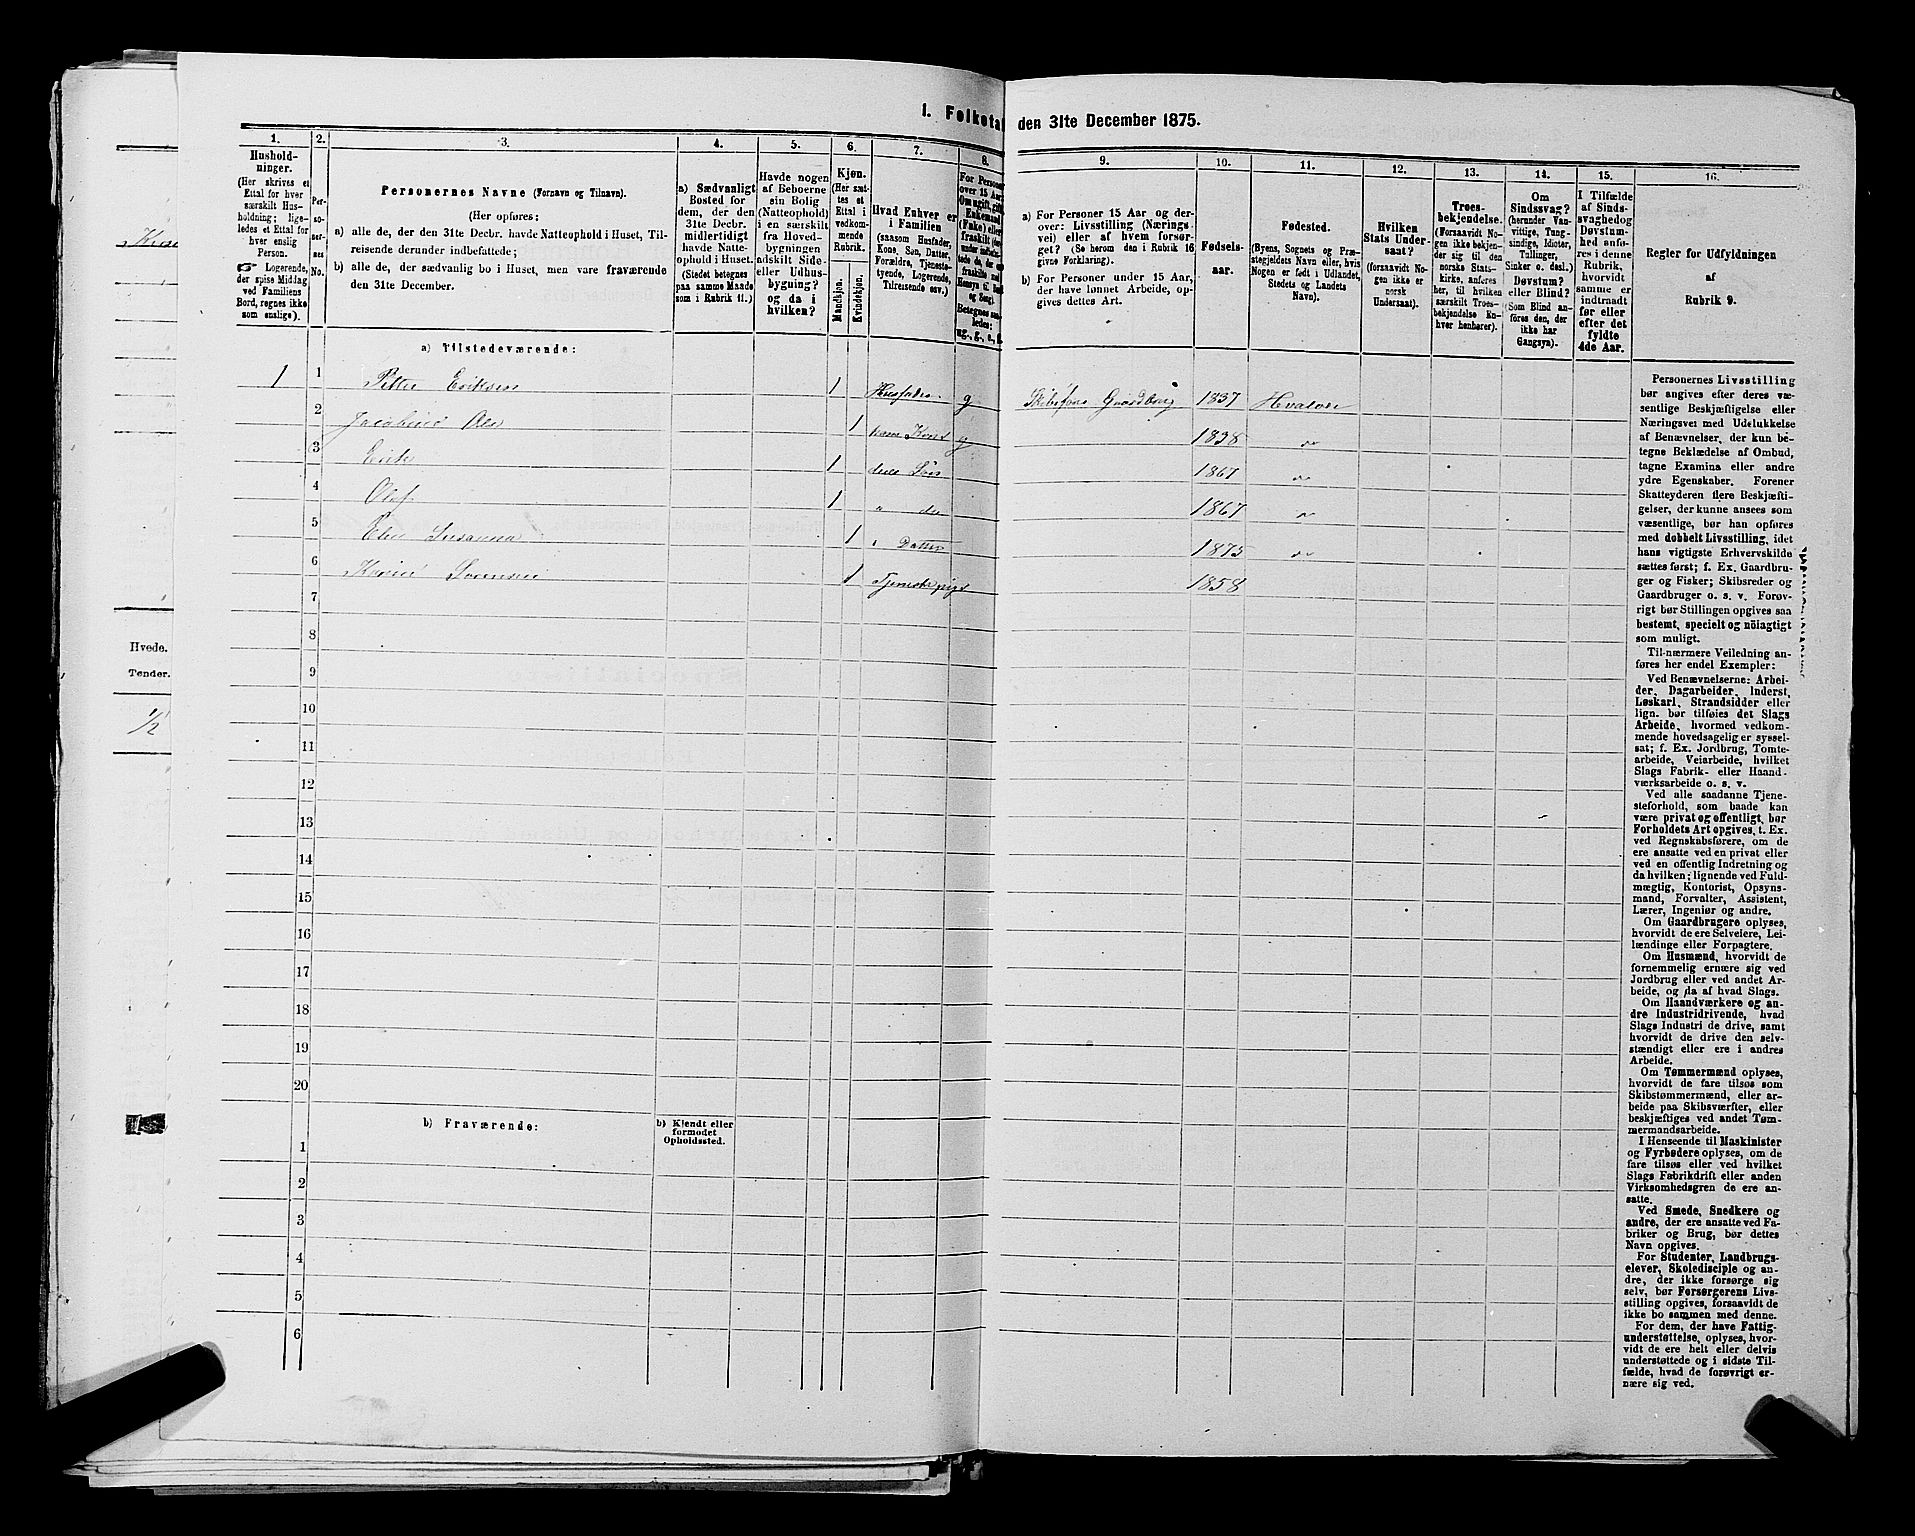 1. Folketal den 31te December 1875.
Kra
Hvede.
Tender.
1/2
1.
Hushold-
ninger.
(Her skrives et
Ettal for hver
særskilt Hus-
holdning; lige-
ledes et Ettal for
hver enslig
Person.
☞ Logerende,
der spise Middag
ved Familiens
Bord, regnes ikke
som enslige).
2.
Per-
so-
ner-
nes
No.
3.
Personernes Navne (Fornavn og Tilnavn).
(Her opføres:
a) alle de, der den 31te Decbr. havde Natteophold i Huset, Til-
reisende derunder indbefattede;
b) alle de, der sædvanlig bo i Huset, men vare fraværende
den 31te December.
4.
a) Sædvanligt
Bosted for
dem, der den
31te Decbr.
midlertidigt
havde Natte-
ophold i Huset.
(Stedet betegnes
paa samme Maade
som i Rubrik 11.)
5.
Havde nogen
af Beboerne
sin Bolig
(Natteophold)
i en særskilt
fra Hoved-
bygningen
adskilt Side-
eller Udhus-
bygning?
og da i
hvilken?
6.
Kjøn.
(Her sæt-
tes et
Ettal i
vedkom-
mende
Rubrik.
Mandkjøn.
Kvindekjøn.
7.
Hvad Enhver er
i Familien
(saasom Husfader,
Kone, Søn, Datter,
Forældre, Tjeneste-
tyende, Logerende,
Tilreisende osv.)
8.
For Personer
over 15 Aar:
Om ugift, gift,
Enkemand
(Enke) eller
fraskilt
Betegnes saa-
ledes:
ug., g., e., f.
9.
a) For Personer 15 Aar og der-
over: Livsstilling (Nærings-
vei) eller af hvem forsør-
get? (Se herom den i Rubrik 16
givne Forklaring).
b) For Personer under 15 Aar,
der have lønnet Arbeide, op-
gives dettes Art.
10.
Fødsels-
aar.
11.
Fødested.
(Byens, Sognets og Præ-
stegjeldets Navn eller, hvis
Nogen er født i Udlandet,
Stedets og Landets
Navn).
12.
Hvilken
Stats Under-
saat?
(forsaavidt No-
gen ikke er
norsk
Undersaat).
13.
Troes-
bekjendelse.
(Forsaavidt No-
gen ikke bekjen-
der sig til den
norske Stats-
kirke, anføres
her, til hvilken
særskilt Troes-
bekjendelse En-
hver henhører).
14.
Om
Sindssvag?
(herunder Van-
vittige, Tung-
sindige, Idioter,
Tullinger,
Sinker o. desl.)
Døvstum?
eller Blind?
(Som Blind an-
føres den, der
ikke har
Gangsyn).
15.
I Tilfælde
af Sinds-
svaghed og
Døvstum-
hed anfø-
res i denne
Rubrik,
hvorvidt
samme er
indtraadt
før eller
efter det
fyldte
4de Aar.
16.
Regler for Udfyldningen
af
Rubrik 9.
a) Tilstedeværende:
1 1 Petter Eriksen 1 Husfader g Skibsfører Gaardbrug 1837 Hvaløer
2 Jacobine Ols 1 hans Kone g 1838 "
3 Erik 1 deres Søn 1867 "
4 Olaf 1 " do 1867 "
5 Elen Susanna 1 " Datter 1875 "
6 Karine Sørensen 1 Tjenestepige 1858
7
8
9
10
11
12
13
14
15
16
17
18
19
20
b) Fraværende: b) Kjendt eller
formodet
Opholdssted.
1
2
3
4
5
6
Personernes Livsstilling
bør angives efter deres væ-
sentlige Beskjæftigelse eller
Næringsvei med Udelukkelse
af Benævnelser, der kun be-
tegne Beklædelse af Ombud,
tagne Examina eller andre
ydre Egenskaber. Forener
Skatteyderen flere Beskjæfti-
gelser, der kunne ansees som
væsentlige, bør han opføres
med dobbelt Livsstilling, idet
hans vigtigste Erhvervskilde
sættes først; f. Ex. Gaardbru-
ger og Fisker; Skibsreder og
Gaardbruger o. s. v. Forøv-
rigt bør Stillingen opgives saa
bestemt, specielt og nöiagtigt
som muligt.
Til nærmere Veiledning an-
føres her endel Exempler:
Ved Benævnelserne: Arbei-
der, Dagarbeider, Inderst,
Løskarl, Strandsidder eller
lign. bør tilføies det Slags
Arbeide, hvormed vedkom-
mende hovedsagelig er syssel-
sat; f. Ex. Jordbrug, Tomte-
arbeide, Veiarbeide, hvilket
Slags Fabrik- eller Haand-
værksarbeide o. s. v.
Ved alle saadanne Tjene-
steforhold, som baade kan
være privat og offentligt, bør
Forholdets Art opgives, t. Ex.
ved Regnskabsførere, om de
ere ansatte ved en privat eller
ved en offentlig Indretning og
da hvilken; lignende ved Fuld-
mægtig, Kontorist, Opsyns-
mand, Forvalter, Assistent,
Lærer, Ingeniør og andre.
Om Gaardbrugere oplyses,
hvorvidt de ere Selveiere, Lei-
lændinge eller Forpagtere.
Om Husmænd, hvorvidt de
fornemmelig ernære sig ved
Jordbrug eller ved andet Ar-
beide, og da af hvad Slags.
Om Haandværkere og an-
dre Industridrivende, hvad
Slags Industri de drive, samt
hvorvidt de drive den selv-
stændigt eller ere i andres
Arbeide.
Om Tømmermænd oplyses,
hvorvidt de fare tilsøs som
Skibstømmermænd, eller ar-
beide paa Skibsværfter, eller
beskjæftiges ved andet Tøm-
mermandsarbeide.
I Henseende til Maskinister
og Fyrbødere oplyses, om de
fare tilsøs eller ved hvilket
Slags Fabrikdrift eller anden
Virksomhedsgren de ere an-
satte.
Ved Smede, Snedkere og
andre, der ere ansatte ved Fa-
briker og Brug, bør dettes
Navn opgives.
For Studenter, Landbrugs-
elever, Skoledisciple og an-
dre, der ikke forsørge sig
selv, bør Forsørgerens Livs-
stilling opgives, forsaavidt de
ikke bo sammen med denne.
For dem, der have Fattig-
understøttelse, oplyses, hvor-
vidt de ere helt eller delvis
understøttede og i sidste Til-
fælde, hvad de forøvrigt er-
nære sig ved.